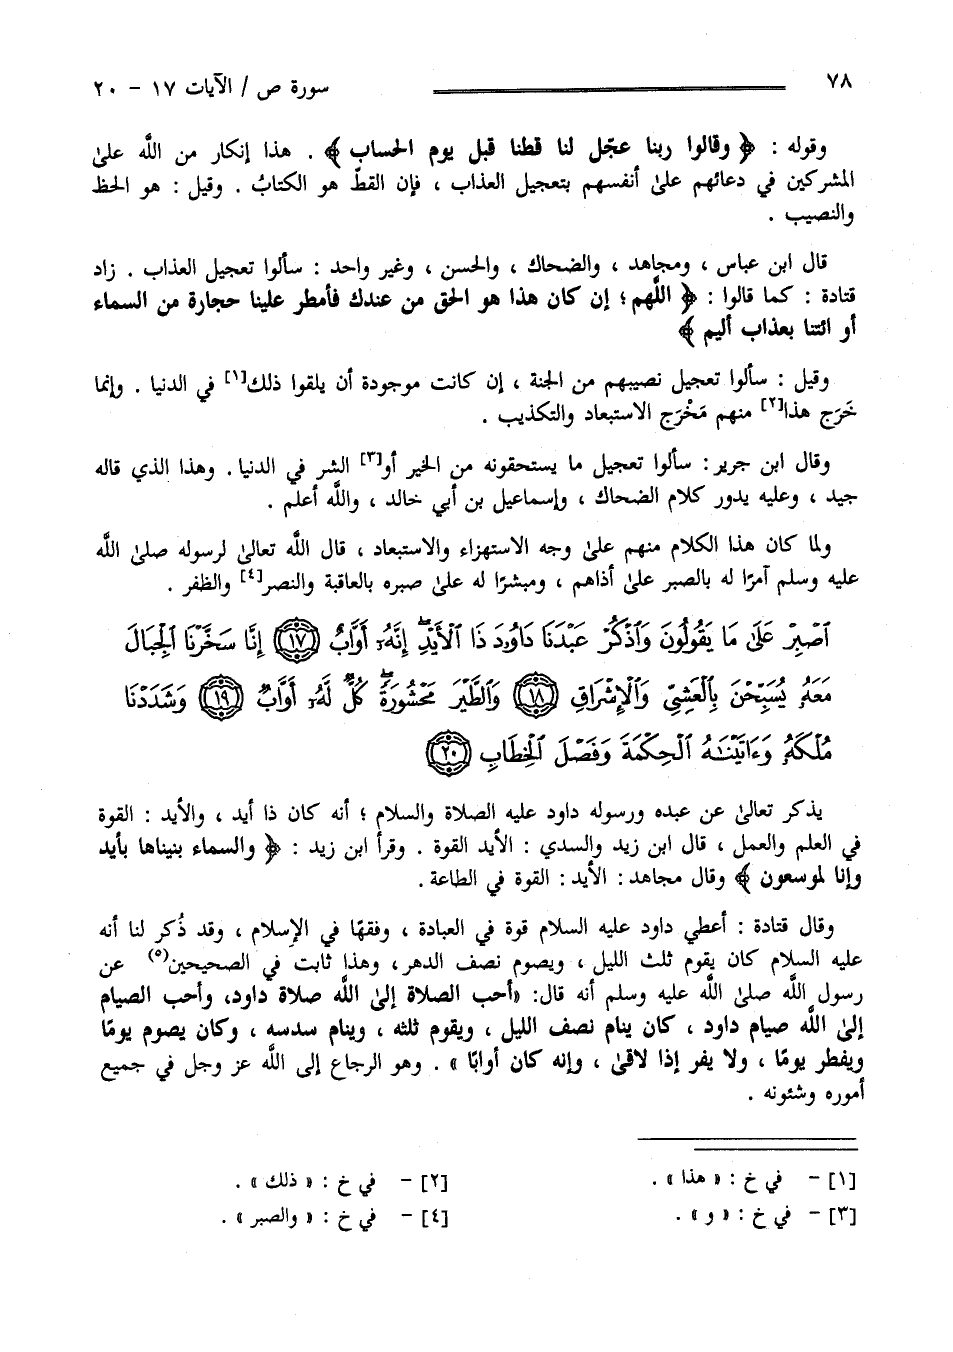 ٧٨
سورة ص / الآيات ١٧ - ٢٠
وقوله : ﴿ وقالوا ربنا عجّل لنا قطنا قبل يوم الحساب ﴾ . هذا إنكار من اللَّه علىٰ
المشركين في دعائهم علىٰ أنفسهم بتعجيل العذاب ، فإن القطّ هو الكتابُ . وقيل : هو الحظ
والنصيب .
قال ابن عباس ، ومجاهد ، والضحاك ، والحسن ، وغير واحد : سألوا تعجيل العذاب . زاد
قتادة : كما قالوا : ﴿ اللَّهم ؛ إن كان هذا هو الحق من عندك فأمطر علينا حجارة من السماء
أو ائتنا بعذاب أليم ﴾
وقيل : سألوا تعجيل نصيبهم من الجنة ، إن كانت موجودة أن يلقوا ذلك[١] في الدنيا . وإنما
خَرَج هذا[٢] منهم مَخْرَج الاستبعاد والتكذيب .
وقال ابن جرير: سألوا تعجيل ما يستحقونه من الخير أو[٣] الشر في الدنيا. وهذا الذي قاله
جيد ، وعليه يدور كلام الضحاك ، وإسماعيل بن أبي خالد ، واللَّه أعلم .
ولما كان هذا الكلام منهم علىٰ وجه الاستهزاء والاستبعاد ، قال اللَّه تعالىٰ لرسوله صلىٰ اللَّه
عليه وسلم آمرًا له بالصبر علىٰ أذاهم ، ومبشرًا له علىٰ صبره بالعاقبة والنصر[٤] والظفر .
ٱصۡبِرۡ عَلَىٰ مَا يَقُولُونَ وَٱذۡكُرۡ عَبۡدَنَا دَاوُۥدَ ذَا ٱلۡأَيۡدِۖ إِنَّهُۥٓ أَوَّابٌ ١٧ إِنَّا سَخَّرۡنَا ٱلۡجِبَالَ
مَعَهُۥ يُسَبِّحۡنَ بِٱلۡعَشِيِّ وَٱلۡإِشۡرَاقِ ١٨ وَٱلطَّيۡرَ مَحۡشُورَةٗۖ كُلّٞ لَّهُۥٓ أَوَّابٞ ١٩ وَشَدَدۡنَا
مُلۡكَهُۥ وَءَاتَيۡنَٰهُ ٱلۡحِكۡمَةَ وَفَصۡلَ ٱلۡخِطَابِ ٢٠
يذكر تعالىٰ عن عبده ورسوله داود عليه الصلاة والسلام ؛ أنه كان ذا أيد ، والأيد : القوة
في العلم والعمل ، قال ابن زيد والسدي : الأيد القوة . وقرأ ابن زيد : ﴿ والسماء بنيناها بأيد
وإنا لموسعون ﴾ وقال مجاهد : الأيد : القوة في الطاعة .
وقال قتادة : أعطي داود عليه السلام قوة في العبادة ، وفقهًا في الإسلام ، وقد ذُكر لنا أنه
عليه السلام كان يقوم ثلث الليل ، ويصوم نصف الدهر، وهذا ثابت في الصحيحين(٥) عن
رسول اللَّه صلىٰ اللَّه عليه وسلم أنه قال: «أحب الصلاة إلىٰ اللَّه صلاة داود، وأحب الصيام
إلىٰ اللَّه صيام داود ، كان ينام نصف الليل ، ويقوم ثلثه ، وينام سدسه ، وكان يصوم يومًا
ويفطر يومًا ، ولا يفر إذا لاقىٰ ، وإنه كان أوابًا » . وهو الرجاع إلى اللَّه عز وجل في جميع
أموره وشئونه .
[١] - في خ : « هذا » .
[٢] - في خ : « ذلك » .
[٣] - في خ : « و » .
[٤] - في خ : « والصبر » .